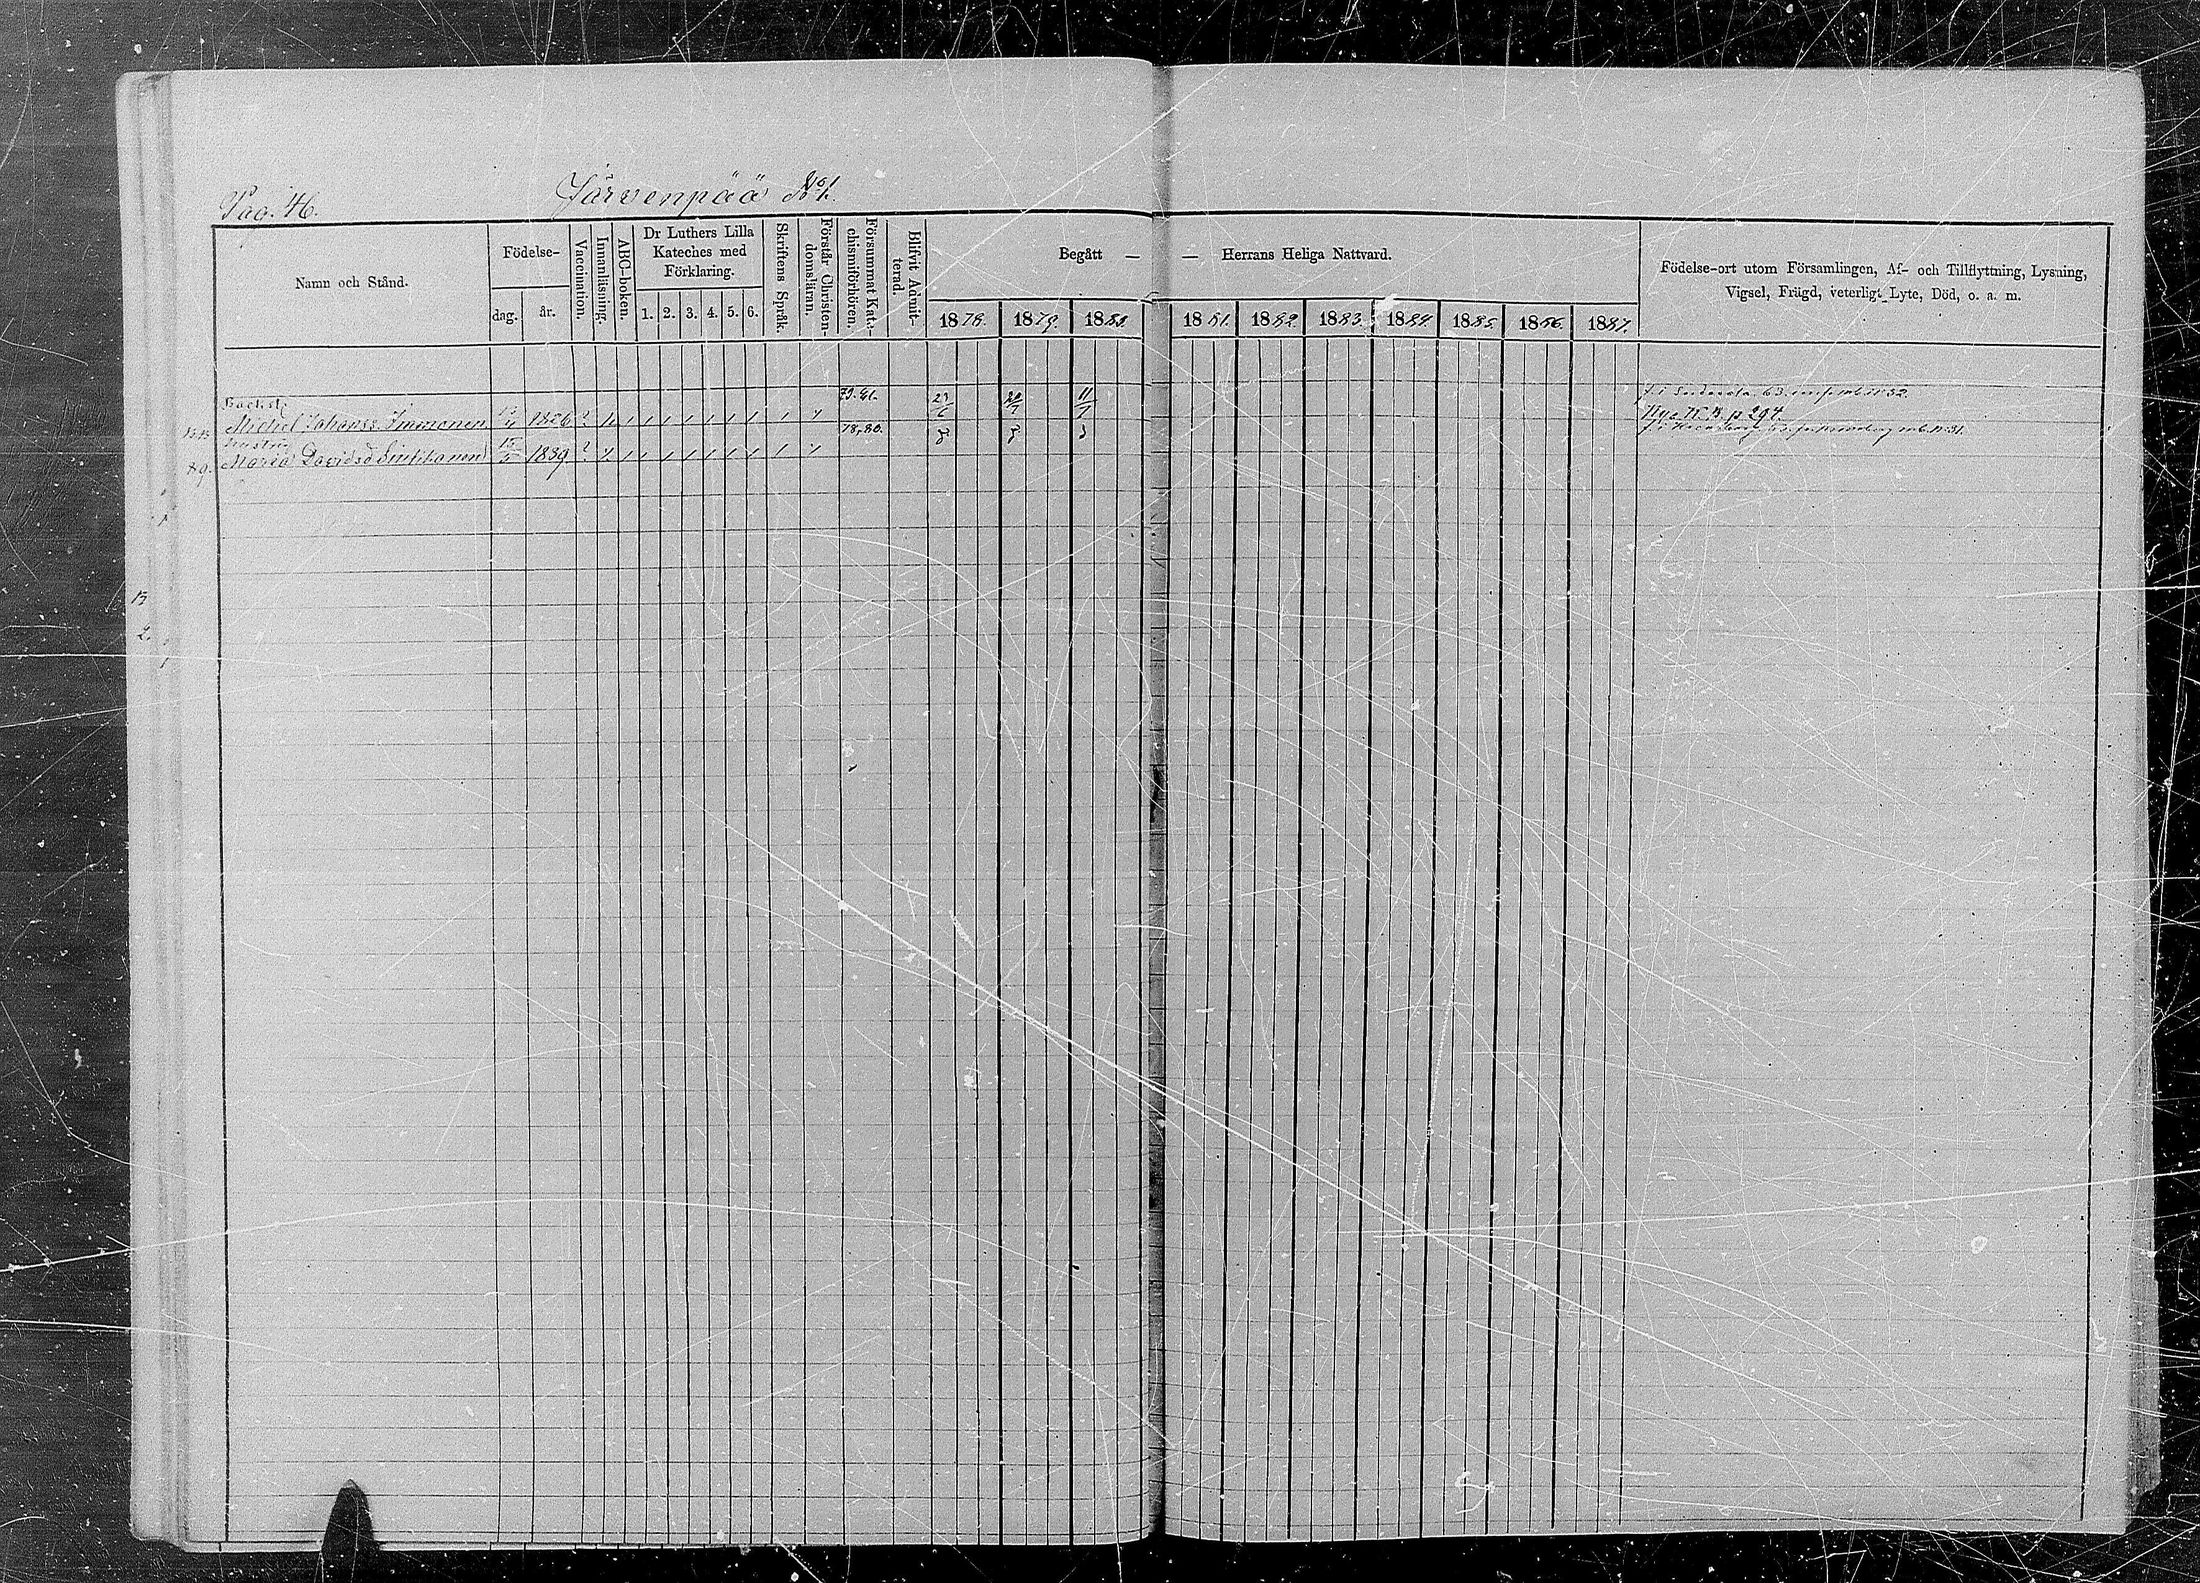 Pag. 46.
Järvenpää No 1.
Namn och Stånd.
Födelse-
dag.
år.
Vaccination.
Innanläsning.
ABC-boken.
Dr Luthers Lilla
Kateches med
Förklaring.
1. 2. 3. 4. 5. 6.
Skriftens Språk.
Förstår Christen-
domsläran.
Försummat Kate-
chismiförhören.
Blifvit Admit-
terad.
Begått — — Herrans Heliga Nattvard.
1878. 1879. 1880. 1881. 1882. 1883. 1884. 1885. 1886. 1887.
Födelse-ort utom Församlingen, Af- och Tillflyttning, Lysning,
Vigsel, Frägd, veterligt Lyte, Död, o. a. m.
Michel Johanss. Immonen 1826 ?
79. 81.
11/7
63. N:32.
p 294
Hustru
Maria Davidsd 1839 ?
78, 80.
N:31.
89.
13
2.